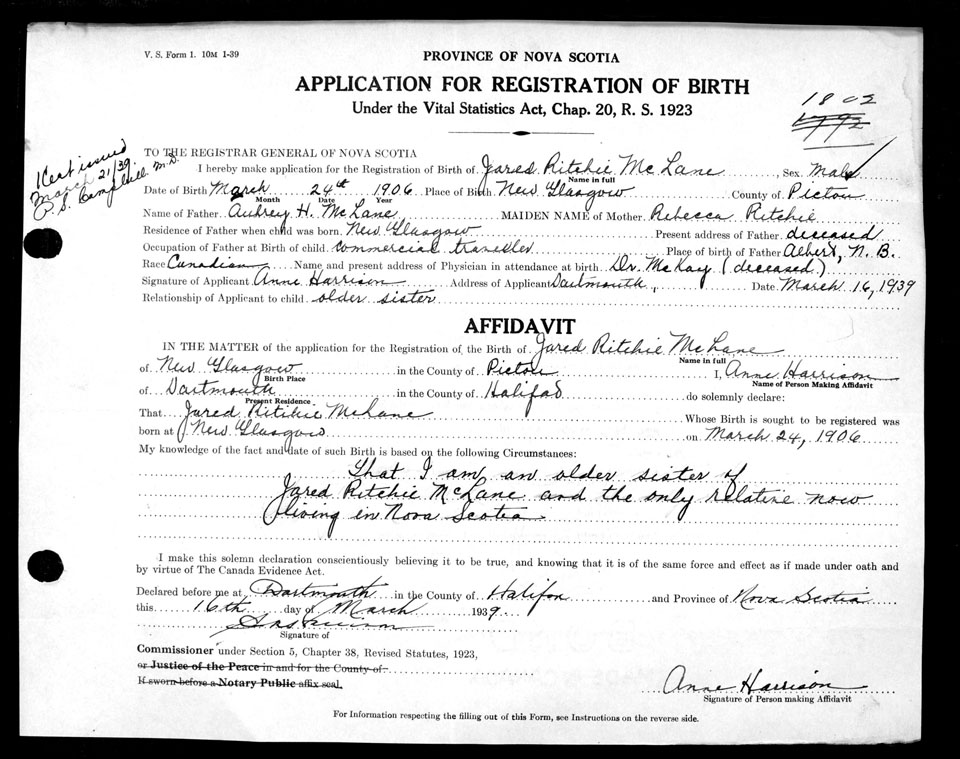 V. S. Form 1. 10M 1-39
PROVINCE OF NOVA SCOTIA
APPLICATION FOR REGISTRATION OF BIRTH
Under the Vital Statistics Act, Chap. 20, R. S. 1923
1802
1792
issued
March 21/39
P. S. Campbell M.D.
TO THE REGISTRAR GENERAL OF NOVA SCOTIA
I hereby make application for the Registration of Birth of Jared Ritchie McLane Sex Male
Name in full
Date of Birth March 24th 1906 Place of Birth New Glasgow County of Pictou
Month Date Year
Name of Father Aubrey H. McLane MAIDEN NAME of Mother Rebecca Ritchie
Residence of Father when child was born New Glasgow Present address of Father deceased
Occupation of Father at Birth of child commercial traveller Place of birth of Father Albert, N. B.
Race Canadian Name and present address of Physician in attendance at birth Dr. McKay (deceased)
Signature of Applicant Anne Harrison Address of Applicant Dartmouth Date March 16, 1939
Relationship of Applicant to child older sister
AFFIDAVIT
IN THE MATTER of the application for the Registration of the Birth of Jared Ritchie McLane
Name in full
of New Glasgow in the County of Pictou I, Anne Harrison
Birth Place Name of Person Making Affidavit
of Dartmouth in the County of Halifax do solemnly declare:
Present Residence
That Jared Ritchie McLane Whose Birth is sought to be registered was
born at New Glasgow on March 24, 1906
My knowledge of the fact and date of such Birth is based on the following Circumstances:
That I am an older sister of
Jared Ritchie McLane and the only relative now
living in Nova Scotia.
I make this solemn declaration conscientiously believing it to be true, and knowing that it is of the same force and effect as if made under oath and
by virtue of The Canada Evidence Act.
Declared before me at Dartmouth in the County of Halifax and Province of Nova Scotia
this 16th day of March 1939.
Signature of
Commissioner under Section 5, Chapter 38, Revised Statutes, 1923,
or Justice of the Peace in and for the County of
If sworn before a Notary Public affix seal.
Anne Harrison
Signature of Person making Affidavit
For Information respecting the filling out of this Form, see Instructions on the reverse side.